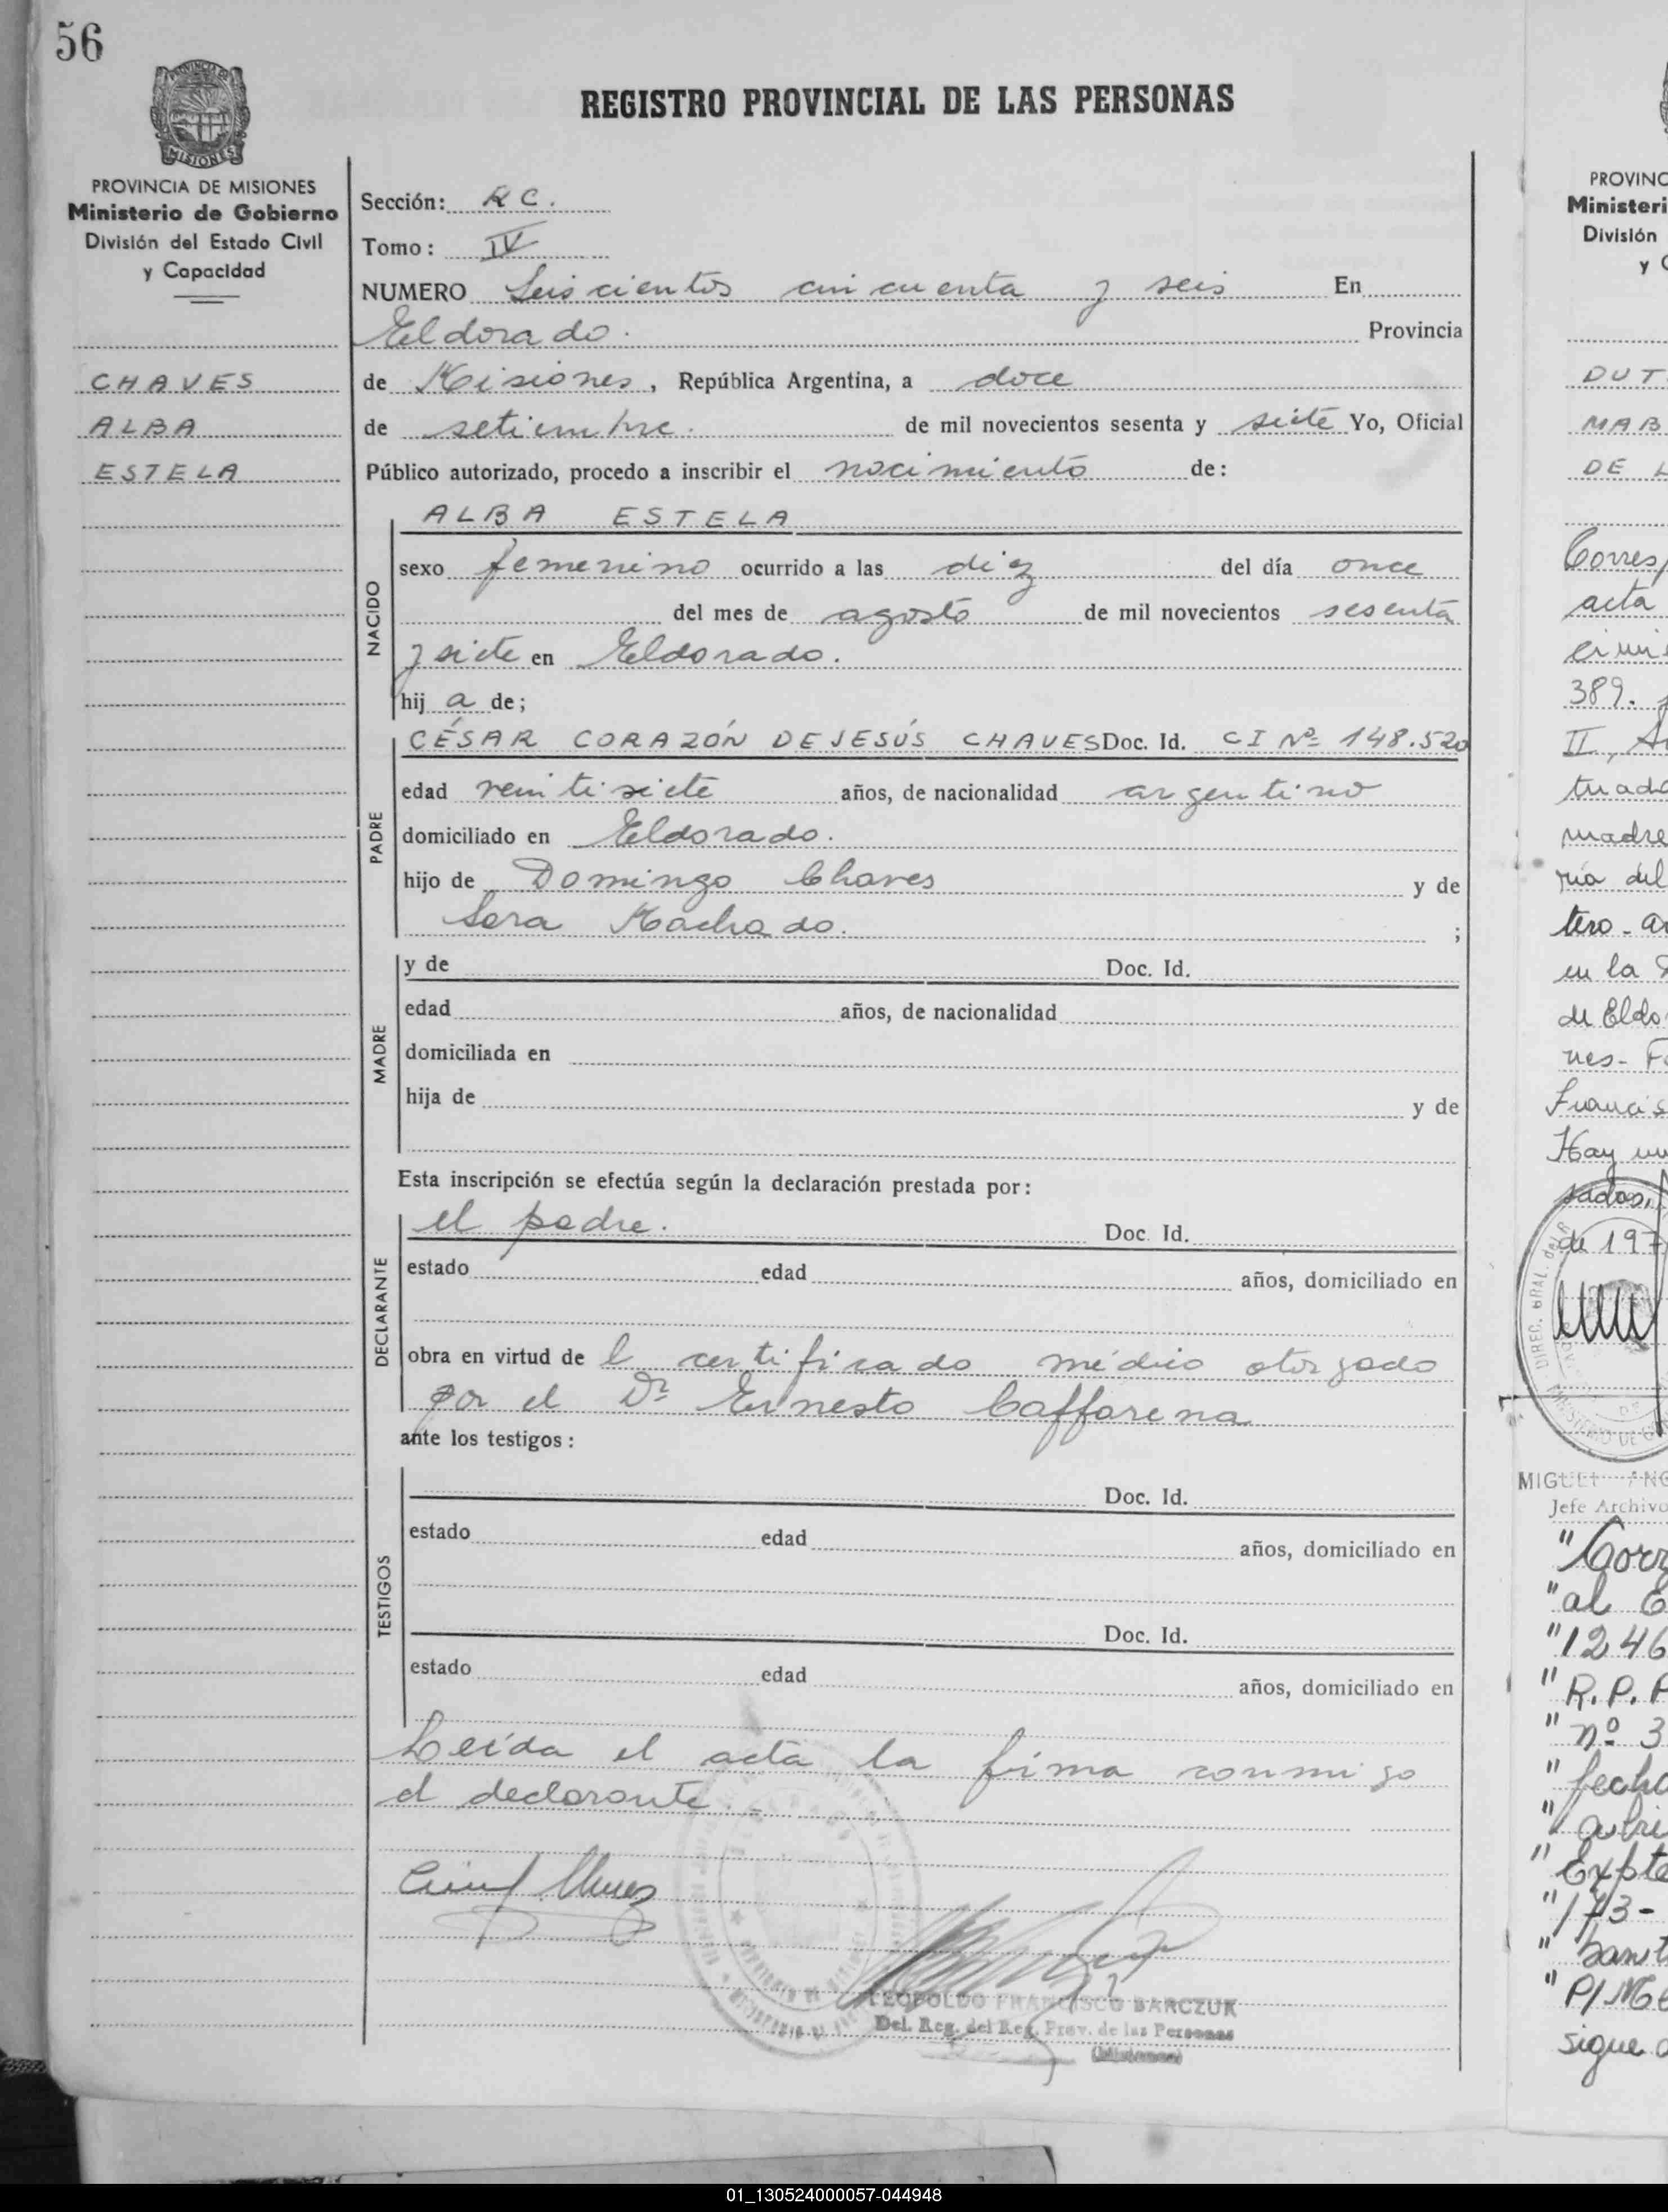 56
REGISTRO PROVINCIAL DE LAS PERSONAS
MISIONES
PROVINCIA DE MISIONES
Ministerio de Gobierno
División del Estado Civil
y Capacidad
CHAVES
ALBA
ESTELA
Sección: RC.
Tomo: IV
NUMERO Seiscientos cincuenta y seis En
Eldorado. Provincia
de Misiones, República Argentina, a doce
de setiembre. de mil novecientos sesenta y siete Yo, Oficial
Público autorizado, procedo a inscribir el nacimiento de:
ALBA ESTELA
NACIDO
sexo femenino ocurrido a las diez del día once
del mes de agosto de mil novecientos sesenta
y siete en Eldorado.
hij a de;
CÉSAR CORAZÓN DE JESÚS CHAVES Doc. Id. CI Nº 148.520
PADRE
edad veintisiete años, de nacionalidad argentino
domiciliado en Eldorado.
hijo de Domingo Chaves y de
Sara Machado. ;
MADRE
y de Doc. Id.
edad años, de nacionalidad
domiciliada en
hija de y de
Esta inscripción se efectúa según la declaración prestada por:
DECLARANTE
el padre. Doc. Id.
estado edad años, domiciliado en
obra en virtud de l certificado médico otorgado
por el Dr Ernesto Caffarena
ante los testigos:
TESTIGOS
Doc. Id.
estado edad años, domiciliado en
Doc. Id.
estado edad años, domiciliado en
Leída el acta la firma conmigo
el declarante.-
LEOPOLDO FRANCISCO BARCZUK
Del. Reg. del Reg. Prov. de las Personas
(Misiones)
PROVINC
Ministeri
División
y C
DUT
MAB
DE L
Corresp
acta
cimi
389.
II, 
tuada
madre
ría del
tero - a
en la
de Eldo
nes-
Francis
Hay un
sados,
de 197
DIREC. GRAL. del R
Jefe Archivo
"Corr
"al
"1246
"R.P.P
"nº 3
"fecha
"abri
"Expte
"173-
"Sant
sigue
01_130524000057-044948